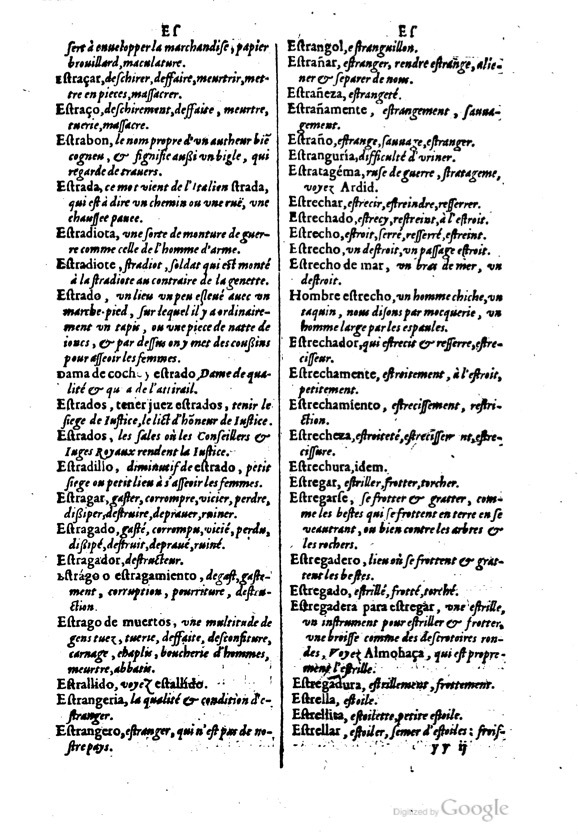 ES
sert à enuelopper la marchandise, papier
brouillard, maculature.
Estraçar, deschirer, deffaire, meurtrir, met-
tre en pieces, massacrer.
Estraço, deschirement, deffaite, meurtre,
tuerie, massacre.
Estrabon, le nom propre d'vn autheur biē
cogneu, & signifie außi vn bigle, qui
regarde de trauers.
Estrada, ce mot vient de l'Italien strada,
qui est à dire vn chemin ou vne ruë, vne
chaussee pauee.
Estradiota, vne sorte de monture de guer-
re comme celle de l'homme d'arme.
Estradiote, stradiot, soldat qui est monté
à la stradiote au contraire de la genette.
Estrado, vn lieu vn peu esleué auec vn
marche-pied, sur lequel il y a ordinaire-
ment vn tapis, ou vne piece de natte de
ioncs, & par dessus on y met des coußins
pour asseoir les femmes.
Dama de coch y estrado, Dame de qua-
lité & qu a de l'attirail.
Estrados, tener juez estrados, tenir le
siege de Iustice, le lict d'hōneur de Iustice.
Estrados, les sales où les Conseillers &
Iuges Royaux rendent la Iustice.
Estradillo, diminutif de estrado, petit
siege ou petit lieu à s'asseoir les femmes.
Estragar, gaster, corrompre, vicier, perdre,
dißiper, destruire, deprauer, ruiner.
Estragado, gasté, corrompu, vicié, perdu,
dißipé, destruit, depraué, ruiné.
Estragador, destructeur.
Estrágo o estragamiento, degast, gaste-
ment, corruption, pourriture, destru-
ction.
Estrago de muertos, vne multitude de
gens tuez, tuerie, deffaite, desconfiture,
carnage, chaplis, boucherie d'hommes,
meurtre, abbatis.
Estrallido, voyez estallido.
Estrangeria, la qualité & condition d'e-
stranger.
Estrangero, estranger, qui n'est pas de no-
stre pays.
ES
Estrangol, estranguillon.
Estrañar, estranger, rendre estrange, alie-
ner & separer de nous.
Estrañeza, estrangeté.
Estrañamente, estrangement, sauua-
gement.
Estraño, estrange, sauuage, estranger.
Estranguría, difficulté d'vriner.
Estratagéma, ruse de guerre, stratageme,
voyez Ardid.
Estrechar, estrecir, estreindre, resserrer.
Estrechado, estrecy, restreint, à l'estroit.
Estrecho, estroit, serré, resserré, estreint.
Estrecho, vn destroit, vn passage estroit.
Estrecho de mar, vn bras de mer, vn
destroit.
Hombre estrecho, vn homme chiche, vn
taquin, nous disons par mocquerie, vn
homme large par les espaules.
Estrechador, qui estrecit & resserre, estre-
cisseur.
Estrechamente, estroitement, à l'estroit,
petitement.
Estrechamiento, estrecissement, restri-
ction.
Estrecheza, estroiteté, estrecissem nt, estre-
cissure.
Estrechura, idem.
Estregar, estriller, frotter, torcher.
Estregarse, se frotter & gratter, com-
me les bestes qui se frottent en terre en se
veautrant, ou bien contre les arbres &
les rochers.
Estregadero, lieu où se frottent & grat-
tent les bestes.
Estregado, estrillé, frotté, torché.
Estregadera para estregar, vne estrille,
vn instrument pour estriller & frotter,
vne broisse comme des descrotoires ron-
des, Voyez Almohaça, qui est propre-
ment l'estrille.
Estregadura, estrillement, frottement.
Estrella, estoile.
Estrellita, estoilette, petite estoile.
Estrellar, estoiler, semer d'estoiles: frois-
yy ij
Digitized by Google